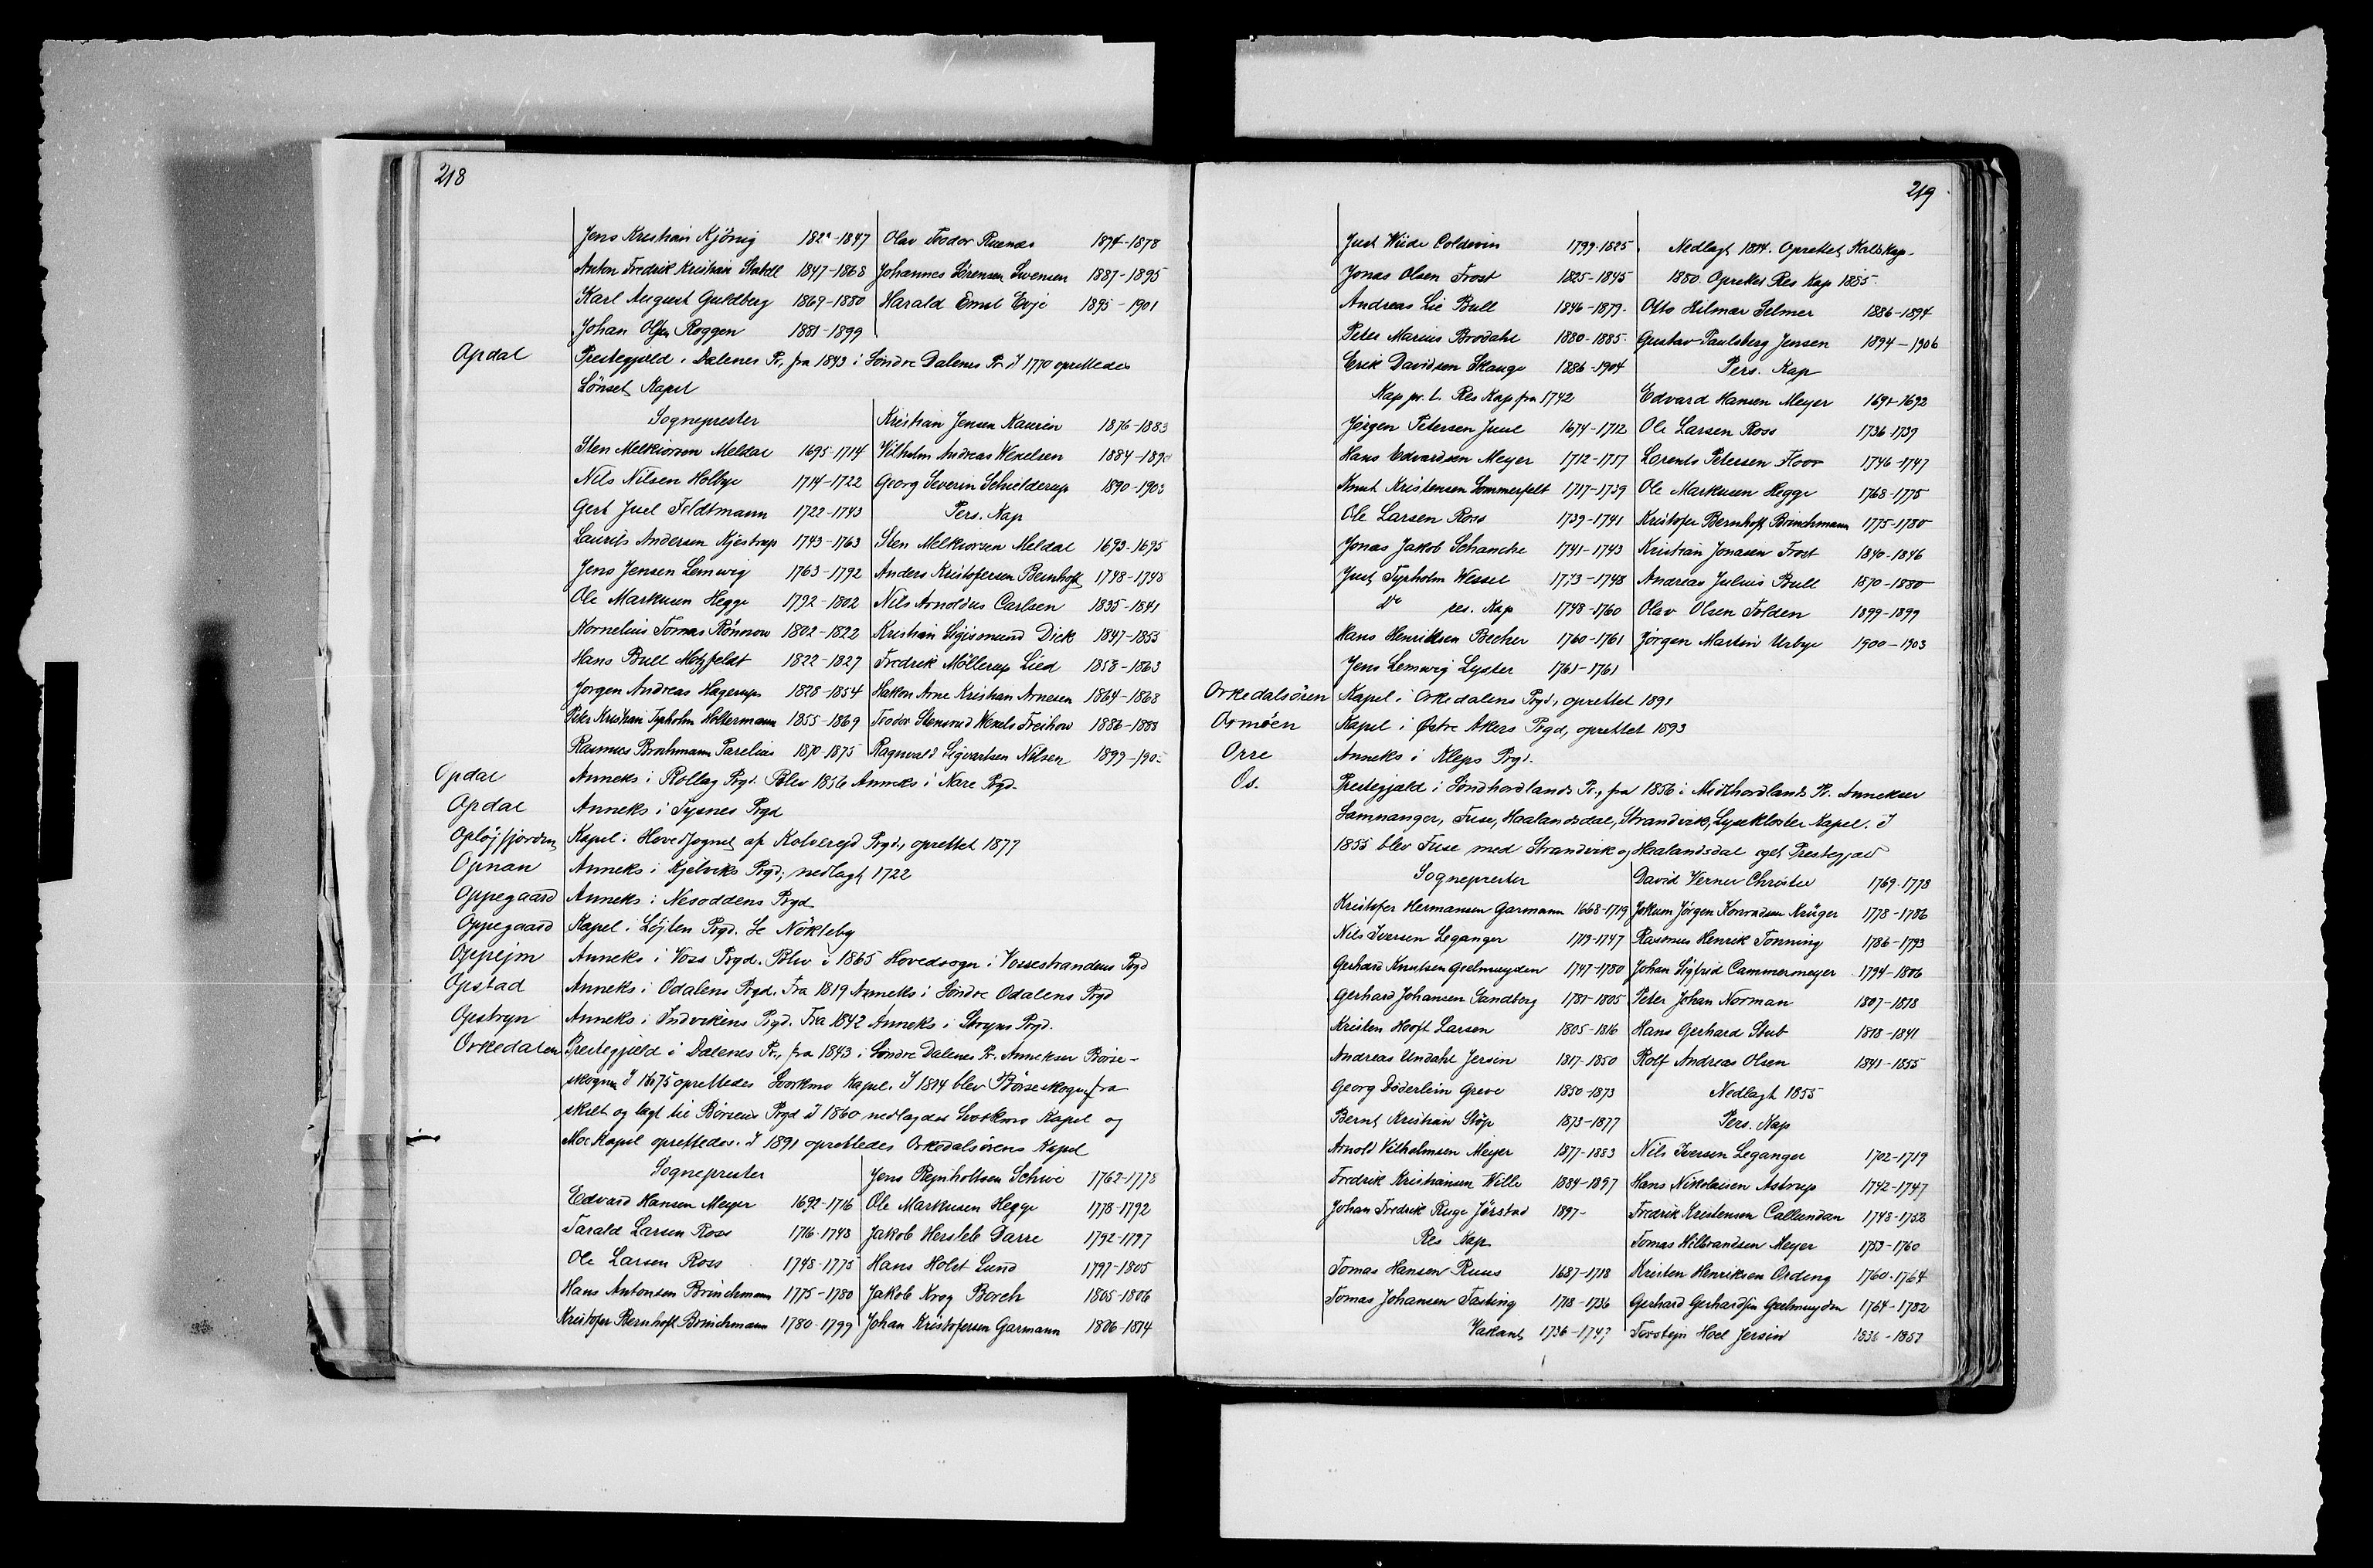 218
Jens Kristian Kjönig 182 -1847 Olav Teodor Ruenæs 1874-1878
Anton Fredrik Kristian Stabell 1847-1868 Johannes Sörensen Svensen 1887-1895
Karl August Guldberg 1869-1880 Harald Ernst Evje 1895-1901
Johan Olsen Roggen 1881-1899
Opdal Prestegjæld i Dalenes Pr., fra 1843 i Söndre Dalenes Pr. I 1770 oprettedes
Lönset Kapel
Sogneprester Kristian Jensen Kaurin 1876-1883
Sten Melkiorsen Meldal 1695-1714 Vilhelm Andreas Wexelsen 1884-1890
Nils Nilsen Holbye 1714-1722 Georg Severin Schielderup 1890-1903
Gert Juel Feldtmann 1722-1743 Pers. Kap
Laurits Andersen Kjestrup 1743-1763 Sten Melkiorsen Meldal 1693-1695
Jens Jensen Lemwig 1763-1792 Anders Kristofersen Bernhoft 1748-1748
Ole Markusen Hegge 1792-1802 Nils Arnoldus Carlsen 1835-1841
Kornelius Tomas Rönnow 1802-1822 Kristian Sigismund Dick 1847-1853
Hans Bull Motzfeldt 1822-1827 Fredrik Möllerup Lied 1858-1863
Jörgen Andreas Hagerup 1828-1854 Hakon Arne Kristian Arnesen 1864-1868
Peter Kristian Tyrholm Holtermann 1855-1869 Teodor Stensrud Wexels Freihow 1886-1888
Rasmus Brochmann Parelius 1870-1875 Ragnvald Sigvartsen Nilsen 1899-190
Opdal Anneks i Rollag Prgd. Blev 1856 Anneks i Nore Prgd.
Opdal Anneks i Tysnes Prgd
Opløjfjorden Kapel i Hovedsognet af Kolvereid Prgd., oprettet 1877
Opnan Anneks i Kjelviks Prgd., nedlagt 1722
Oppegaard Anneks i Nesoddens Prgd
Oppegaard Kapel i Löjten Prgd. Se Nökleby
Oppejm Anneks i Voss Prgd. Blev i 1865 Hovedsogn i Vossestrandens Prgd
Opstad Anneks i Odalens Prgd. Fra 1819 Anneks i Söndre Odalens Prgd
Opstryn Anneks i Indvikens Prgd. Fra 1842 Anneks i Stryns Prgd.
Orkedalen Prestegjæld i Dalenes Pr., fra 1843 i Söndre Dalenes Pr. Annekser Börse-
skogn. I 1675 oprettedes Svorkmo Kapel. I 1814 blev Börseskogn fra
skilt og lagt til Börsens Prgd I 1860 nedlagdes Svorkmo Kapel og
Moe Kapel oprettedes. I 1891 oprettedes Orkedalsörens Kapel
Sogneprester Jens Rejnholtsen Schive 1762-1778
Edvard Hansen Meyer 1692-1716 Ole Markusen Hegge 1778-1792
Tarald Larsen Ross 1716-1748 Jakob Hersleb Darre 1792-1797
Ole Larsen Ross 1748-1775 Hans Holst Lund 1797-1805
Hans Antonsen Brinchmann 1775-1780 Jakob Krog Borch 1805-1806
Kristofer Bernhoft Brinchmann 1780-1799 Johan Kristofersen Garmann 1806-1814
219
Just Wiide Coldevin 1799-1825 Nedlagt 1814. Oprettet Kaldskap.
Jonas Olsen Frost 1825-1845 1880. Oprettet Res Kap 1885.
Andreas Lie Bull 1846-1879 Otto Hilmar Selmer 1886-1894
Peter Marius Brodahl 1880-1885 Gustav Paulsberg Jensen 1894-1906
Erik Davidsen Skauge 1886-1904 Pers. Kap
Kap pr. t. Res Kap fra 1742 Edvard Hansen Meyer 1691-1692
Jörgen Petersen Juul 1674-1712 Ole Larsen Ross 1736-1739
Hans Edvardsen Meyer 1712-1717 Lorents Petersen Floor 1746-1747
Knut Kristensen Sommerfelt 1717-1739 Ole Markusen Hegge 1768-1775
Ole Larsen Ross 1739-1741 Kristofer Bernhoft Brinchmann 1775-1780
Jonas Jakob Schanche 1741-1743 Kristian Jonasen Frost 1840-1846
Just Tyrholm Wessel 1743-1748 Andreas Julius Bull 1870-1880
Do res. Kap 1748-1760 Olav Olsen Folden 1899-1899
Hans Henriksen Becher 1760-1761 Jörgen Martin Urbye 1900-1903
Jens Lemwig Lyster 1761-1761
Orkedalsören Kapel i Orkedalens Prgd., oprettet 1891
Ormöen Kapel i Østre Akers Prgd, oprettet 1893
Orre Anneks i Kleps Prgd.
Os. Prestegjæld i Söndhordlands Pr., fra 1856 i Midthordlands Pr. Annekser
Samnanger, Fuse, Haalandsdal, Strandvik, Lysekloster Kapel. I
1855 blev Fuse med Strandvik og Haalandsdal eget Prestegjæld
Sogneprester David Verner Christie 1769-1778
Kristofer Hermansen Garmann 1668-1719 Jokum Jörgen Konradsen Krüger 1778-1786
Nils Iversen Leganger 1719-1747 Rasmus Henrik Tonning 1786-1793
Gerhard Knutsen Geelmuyden 1747-1780 Johan Sigfrid Cammermeyer 1794-1806
Gerhard Johansen Sandberg 1781-1805 Peter Johan Norman 1807-1818
Kristen Hooft Larsen 1805-1816 Hans Gerhard Stub 1818-1841
Andreas Undahl Jersin 1817-1850 Rolf Andreas Olsen 1841-1855
Georg Döderlein Greve 1850-1873 Nedlagt 1855
Bernt Kristian Stöp 1873-1877 Pers. Kap
Arnold Vilhelmsen Meyer 1877-1883 Nils Iversen Leganger 1702-1719
Fredrik Kristiansen Wille 1884-1897 Hans Nikolaisen Astrup 1742-1747
Johan Fredrik Ruge Jörstad 1897- Fredrik Kristensen Callundan 1748-1752
Res Kap Tomas Hilbrandsen Meyer 1753-1760
Tomas Hansen Ruus 1687-1718 Kristen Henriksen Ording 1760-1764
Tomas Johansen Tasting 1718-1736 Gerhard Gerhardsen Geelmuyden 1764-1782
Vakant 1736-1747 Torstejn Hoel Jersin 1836-1857